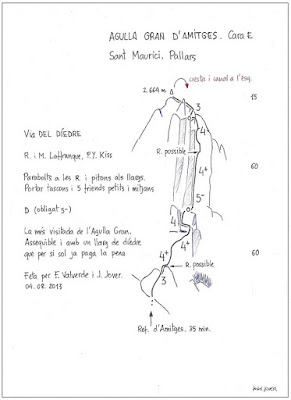 AGULLA GRAN D'AMITGES. Cara E
Sant Maurici. Pallars
cresta i canal a l'esq.
2.664 m
3
15
4
VIA DEL DÍEDRE
4
R. possible
R. i M. Laffranque, F.Y. Kiss
4+
60
Parabolts a les R. i pitons als llargs.
Portar tascons i 5 friends petits i mitjans
5-
D (obligat 5-)
La més visitada de l'Agulla Gran.
Assequible i amb un llarg de díedre
que per si sol ja paga la pena
4
4+
60
4+
R. possible
3
Feta per E. Valverde i J. Jover.
04.08.2013
Ref. d'Amitges. 35 min.
JOAN JOVER